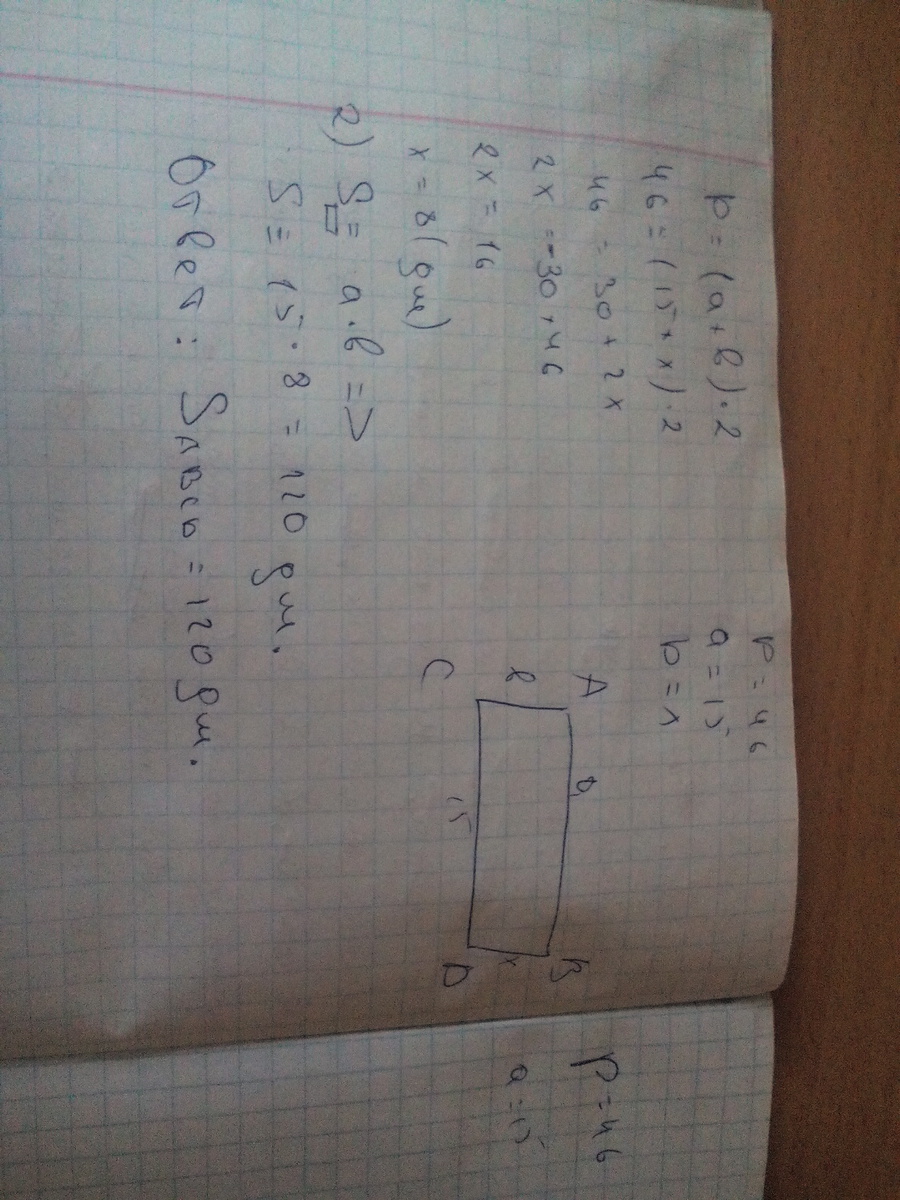 P = (a + b) · 2
46 = (15 + x) · 2
46 = 30 + 2x
2x = -30 + 46
2x = 16
x = 8 (дм)
2) S▭ = a · b =>
S = 15 · 8 = 120 дм.
Ответ: SABCD = 120 дм.
P = 46
a = 15
b = x
A
a
B
b
x
C
15
D
P = 46
a = 15